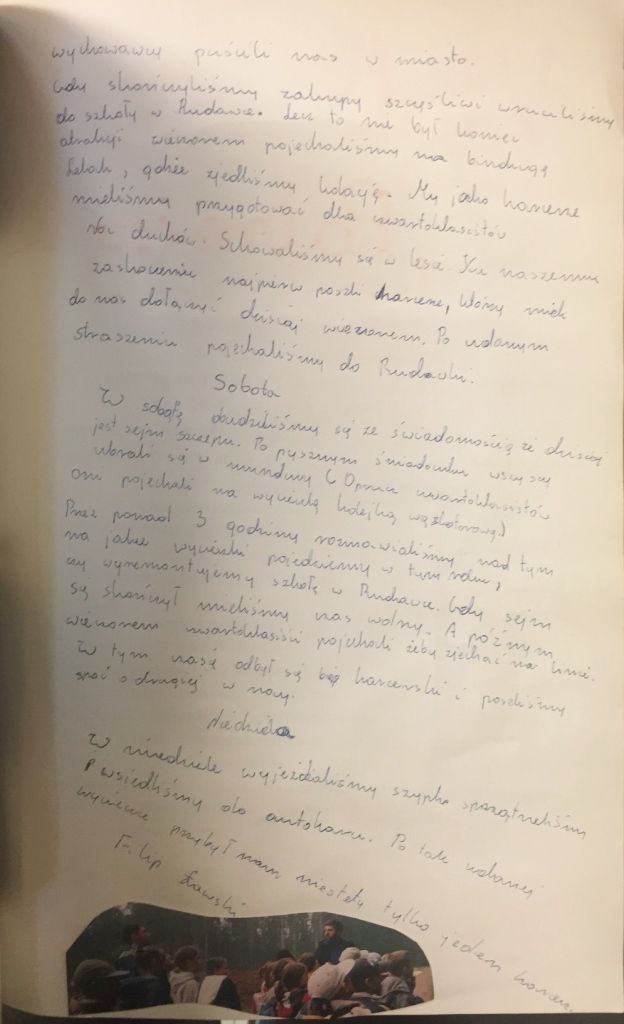 wychowawcy puścili nas w miasto.
Gdy skończyliśmy zakupy szczęśliwi wruciliśmy
do szkoły w Rudawce. Lecz to nie był koniec
atrakcji wieczorem pojechaliśmy na bindugę
Jałak, gdzie zjedliśmy kolację. My jako harcerze
mieliśmy przygotować dla czwartoklasistów
Noc duchów. Schowaliśmy się w lesie. Ku naszemu
zaskoczeniu najpierw poszli harcerze, którzy mieli
do nas dołączyć dzisiaj wieczorem. Po udanym
straszeniu pojechaliśmy do Rudawki.
Sobota
W sobotę obudziliśmy się ze świadomością że dzisiaj
jest sejm szczepu. Po pysznym śniadaniu wszyscy
ubrali się w mundury (Oprucz czwartoklasistów
oni pojechali na wycieczkę kolejką wązkotorową.)
Przez ponad 3 godziny rozmawialiśmy nad tym
na jakie wycieczki pojedziemy w tym roku,
czy wyremontujemy szkołę w Rudawce. Gdy sejm
się skończył mieliśmy czas wolny. A późnym
wieczorem czwartoklasiści pojechali żeby zjechać na linie.
W tym czasie odbył się bieg harcerski i poszliśmy
spać o drugiej w nocy.
Niedziela
W niedziele wyjeżdżaliśmy szypko sprzątneliśmy
i wsiedliśmy do autokaru. Po tak udanej
wycieczce przybył nam niestety tylko jeden harcerz.
Filip Ławski